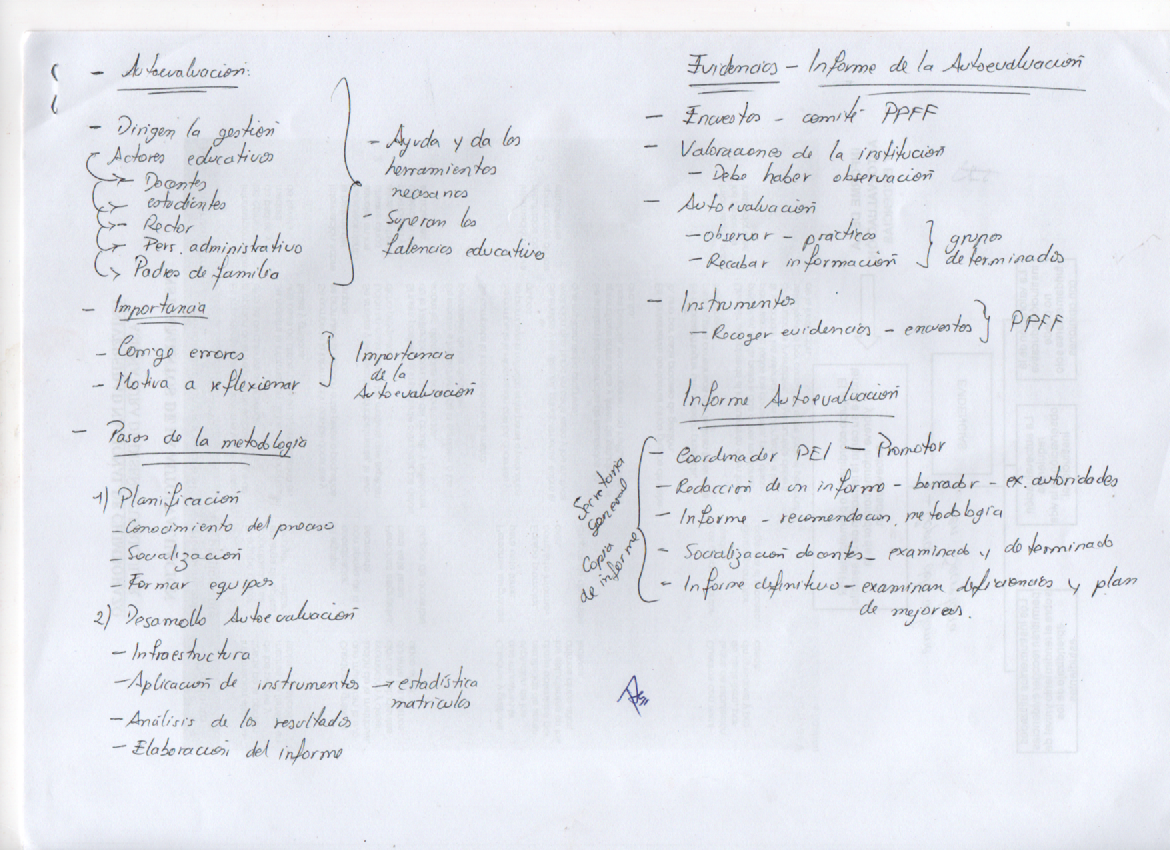 - Autoevaluación:
- Dirigen la gestión
Actores educativos
→ Docentes
→ estudiantes
→ Rector
→ Pers. administrativo
→ Padres de familia
- Ayuda y da las
herramientas
necesarias
- Superan las
falencias educativas
- Importancia
- Corrige errores
- Motiva a reflexionar
Importancia
de la
Autoevaluación
- Pasos de la metodología
1) Planificación
- Conocimiento del proceso
- Socialización
- Formar equipos
2) Desarrollo Autoevaluación
- Infraestructura
- Aplicación de instrumentos → estadística
matrículas
- Análisis de los resultados
- Elaboración del informe
Evidencias - Informe de la Autoevaluación
- Encuestas - comité PPFF
- Valoraciones de la institución
- Debe haber observación
- Autoevaluación
- Observar - prácticas
- Recabar información
grupos
determinados
- Instrumentos
- Recoger evidencias - encuestas
PPFF
Informe Autoevaluación
Secretaria
general
Copia
de informe
- Coordinador PEI - Promotor
- Redacción de un informe - borrador - ex. autoridades
- Informe - recomendacion metodología
- Socialización docentes - examinado y determinado
- Informe definitivo - examinan deficiencias y plan
de mejoras.